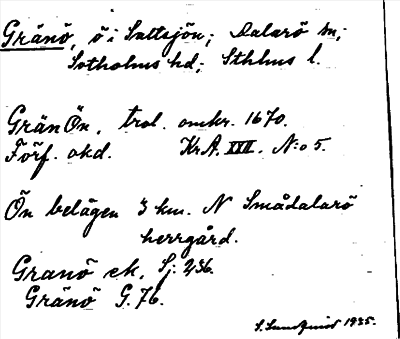 Gränö, ö i Saltsjön; Dalarö sn;
Sotholms hd; Sthlms l.
Grän Ön. trol. omkr. 1670.
Förf. okd. KrA. XVII. N:o 5.
Ön belägen 3 km. N Smådalarö
herrgård.
Granö ek. Sj. 236.
Gränö G. 76.
S. Sundquist 1935.